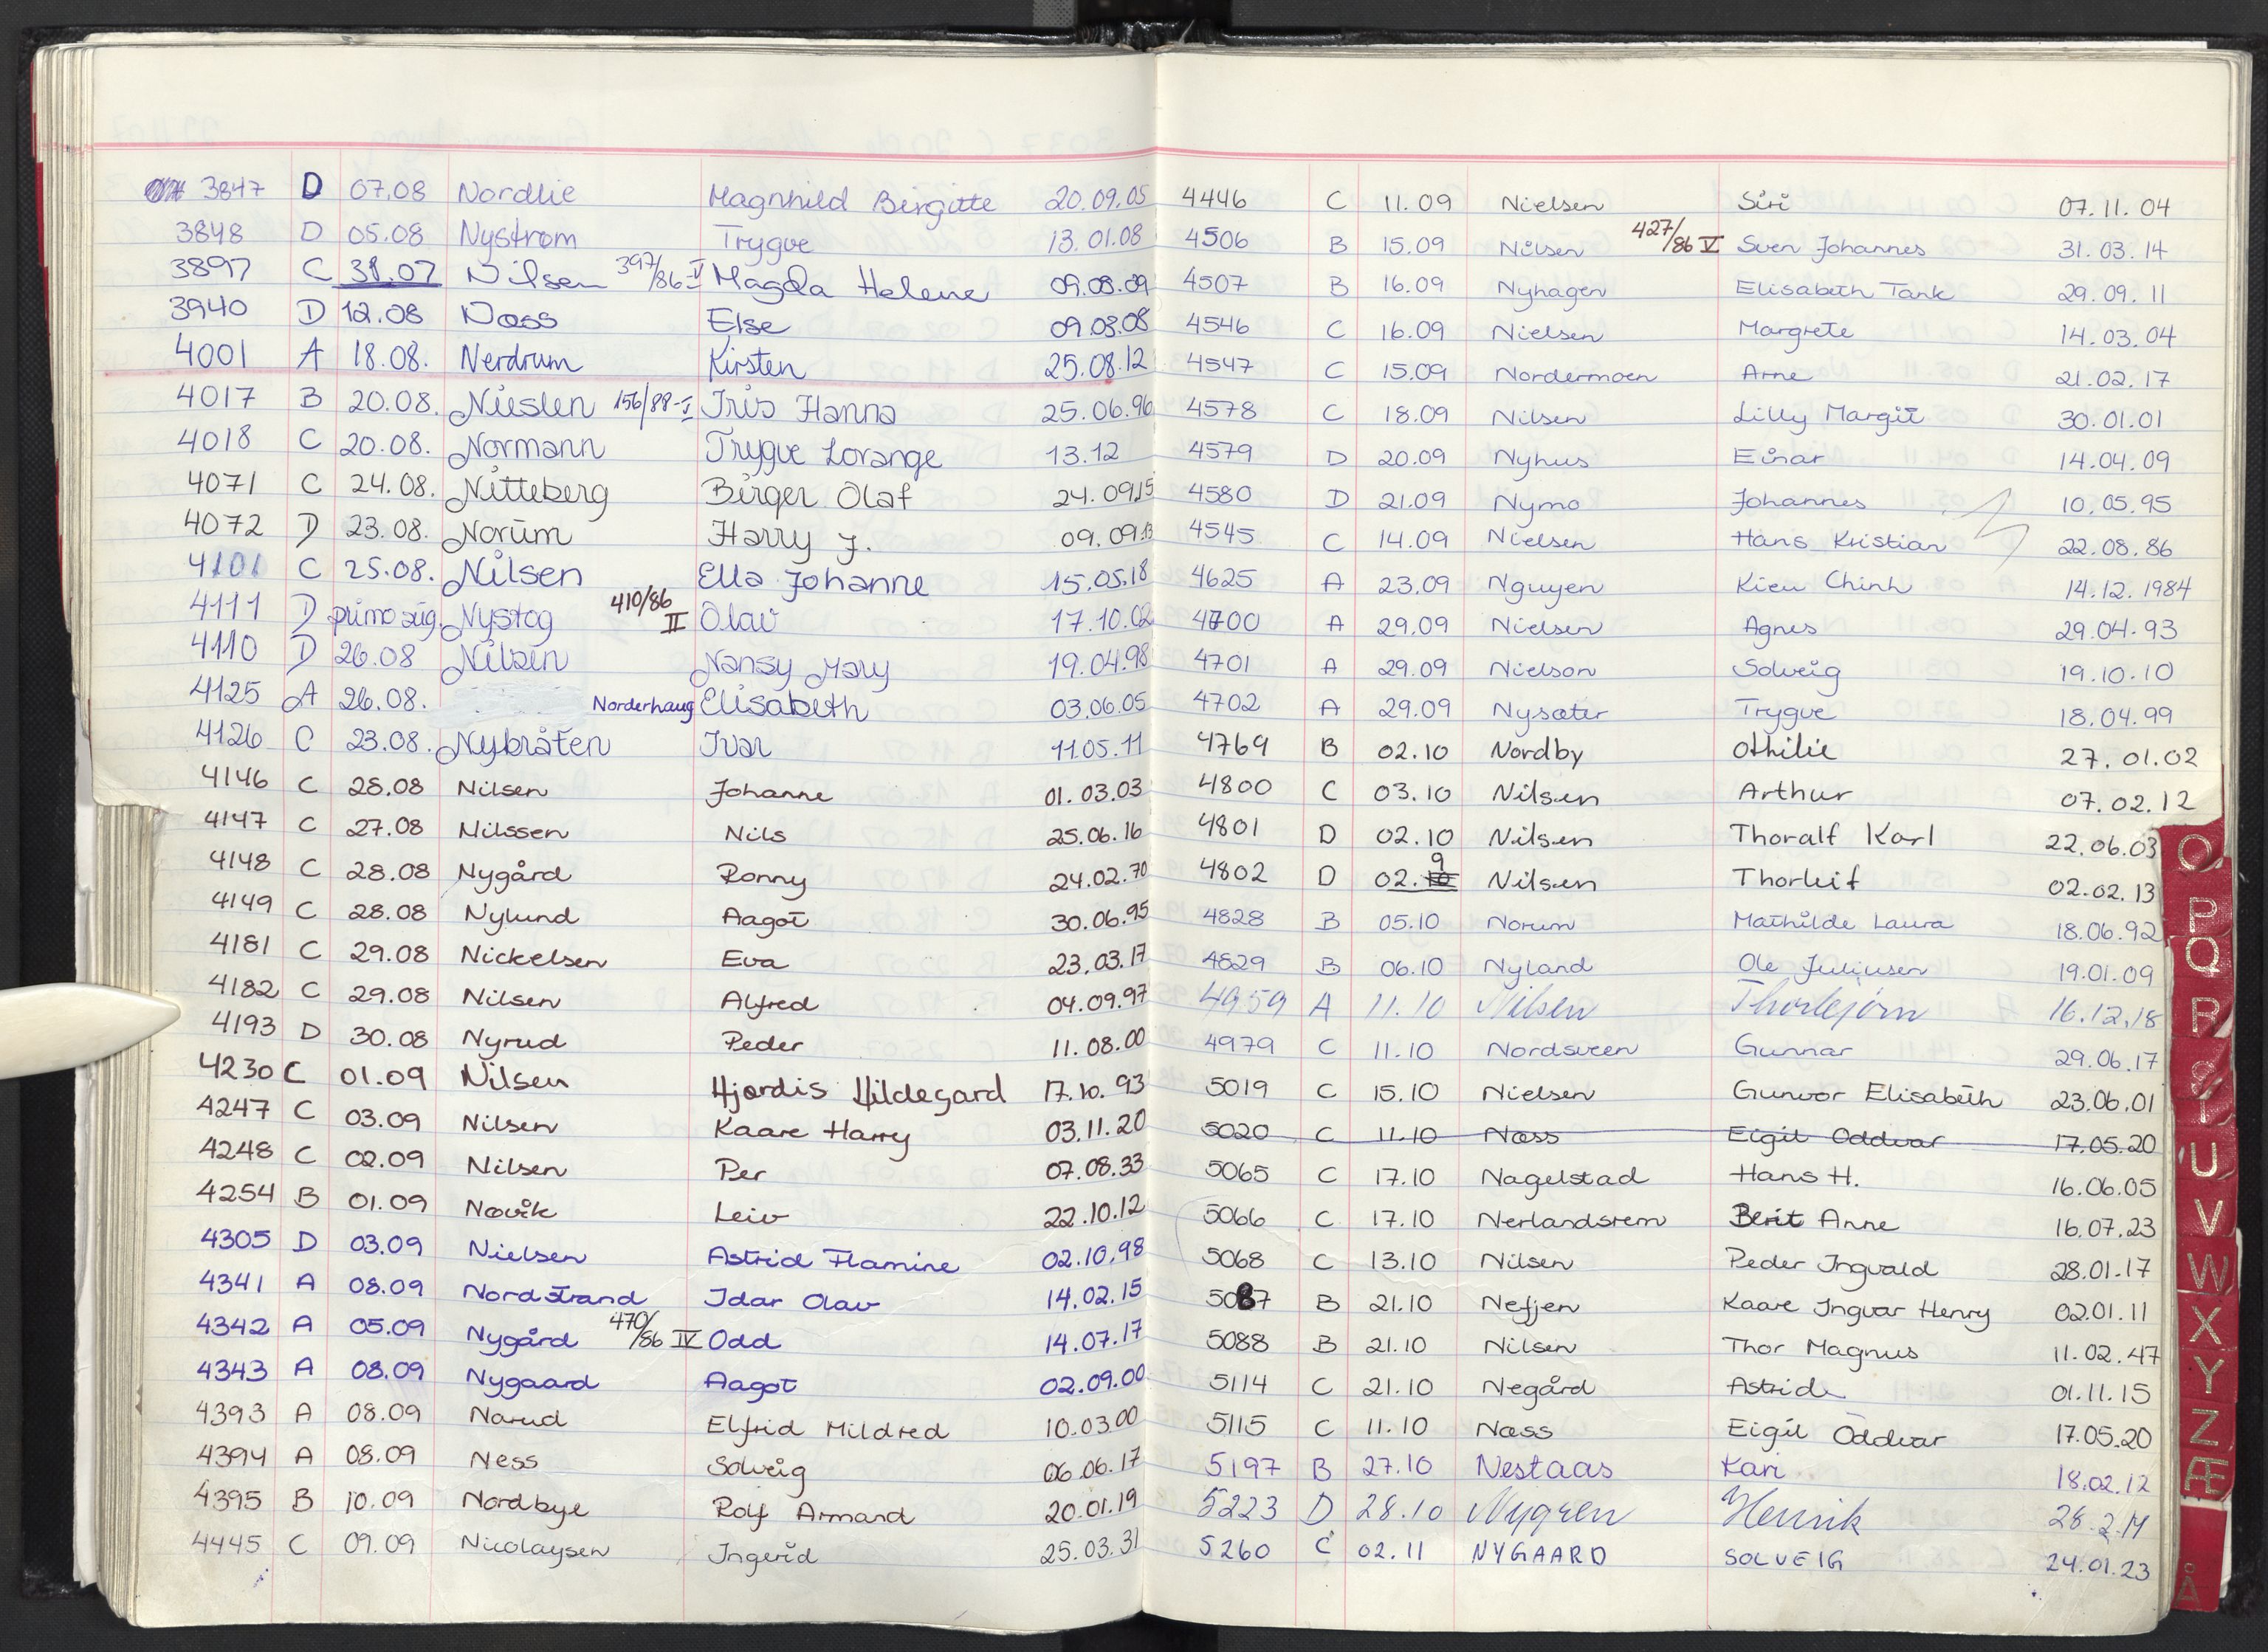 3847 D 07.08 Nordlie Magnhild Birgitte 20.09.05
3848 D 05.08 Nystrøm Trygve 13.01.08
3897 C 31.07 Nilsen 397/86-V Magda Helene 09.08.09
3940 D 12.08 Næss Else 09.03.08
4001 A 18.08. Nerdrum Kirsten 25.08.12
4017 B 20.08. Nieslen 156/88-I Iris Hanna 25.06.96
4018 C 20.08. Normann Trygve Lorange 13.12
4071 C 24.08. Nitteberg Birger Olaf 24.09.15
4072 D 23.08. Norum Harry J. 09.09.13
4101 C 25.08. Nilsen Ella Johanne 15.05.18
4111 D primo aug. Nystog 410/86 II Olav 17.10.02
4110 D 26.08 Nilsen Nansy Mary 19.04.98
4125 A 26.08. Norderhaug Elisabeth 03.06.05
4126 C 23.08. Nybråten Ivar 11.05.11
4146 C 28.08 Nilsen Johanne 01.03.03
4147 C 27.08 Nilssen Nils 25.06.16
4148 C 28.08 Nygård Ronny 24.02.70
4149 C 28.08 Nylund Aagot 30.06.95
4181 C 29.08 Nickelsen Eva 23.03.17
4182 C 29.08 Nilsen Alfred 04.09.97
4193 D 30.08 Nyrud Peder 11.08.00
4230 C 01.09 Nilsen Hjørdis Hildegard 17.10.93
4247 C 03.09 Nilsen Kaare Harry 03.11.20
4248 C 02.09 Nilsen Per 07.08.33
4254 B 01.09 Nøvik Leiv 22.10.12
4305 D 03.09 Nielsen Astrid Flamine 02.10.98
4341 A 08.09 Nordstrand Idar Olav 14.02.15
4342 A 05.09 Nygård 470/86 IV Odd 14.07.17
4343 A 08.09 Nygaard Aagot 02.09.00
4393 A 08.09 Narud Elfrid Mildred 10.03.00
4394 A 08.09 Ness Solveig 06.06.17
4395 B 10.09 Nordbye Rolf Armand 20.01.19
4445 C 09.09 Nicolaysen Ingerid 25.03.31
4446 C 11.09 Nielsen Siri 07.11.04
4506 B 15.09 Nilsen 427/86 V Sven Johannes 31.03.14
4507 B 16.09 Nyhagen Elisabeth Tank 29.09.11
4546 C 16.09 Nielsen Margrete 14.03.04
4547 C 15.09 Nordermoen Arne 21.02.17
4578 C 18.09 Nilsen Lilly Margit 30.01.01
4579 D 20.09 Nyhus Einar 14.04.09
4580 D 21.09 Nymo Johannes 10.05.95
4545 C 14.09 Nielsen Hans Kristian 22.08.86
4625 A 23.09 Nguyen Kieu Chinh 14.12.1984
4700 A 29.09 Nielsen Agnes 29.04.93
4701 A 29.09 Nielson Solveig 19.10.10
4702 A 29.09 Nysæter Trygve 18.04.99
4769 B 02.10 Nordby Othilie 27.01.02
4800 C 03.10 Nilsen Arthur 07.02.12
4801 D 02.10 Nilsen Thoralf Karl 22.06.03
4802 D 02.9 Nilsen Thorleif 02.02.13
4828 B 05.10 Norum Mathilde Laura 18.06.92
4829 B 06.10 Nyland Ole Juliusen 19.01.09
4959 A 11.10 Nilsen Thorbjørn 16.12.18
4979 C 11.10 Nordsveen Gunnar 29.06.17
5019 C 15.10 Nielsen Gunvor Elisabeth 23.06.01
5020 C 11.10 Næss Eigil Oddvar 17.05.20
5065 C 17.10 Nagelstad Hans H. 16.06.05
5066 C 17.10 Nerlandsrem Berit Anne 16.07.23
5068 C 13.10 Nilsen Peder Ingvald 28.01.17
5087 B 21.10 Nefjen Kaare Ingvar Henry 02.01.11
5088 B 21.10 Nilsen Thor Magnus 11.02.47
5114 C 21.10 Negård Astrid 01.11.15
5115 C 11.10 Næss Eigil Oddvar 17.05.20
5197 B 27.10 Nestaas Kari 18.02.12
5223 D 28.10 Nygren Henrik 28.2.11
5260 C 02.11 NYGAARD SOLVEIG 24.01.23
O
P
Q
R
S
T
U
V
W
X
Y
Z
Æ
Å